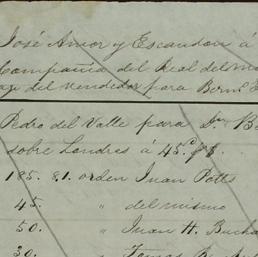 José Amor y Escandon á
Compañia del Real del Mo
del Vendedor para Bern.
Pedro del Valle para Dn. B
sobre Londres á 45
185. 81. orden Juan Potts
45. " del mismo
50. " Juan H. Bucha
30. " Tomas